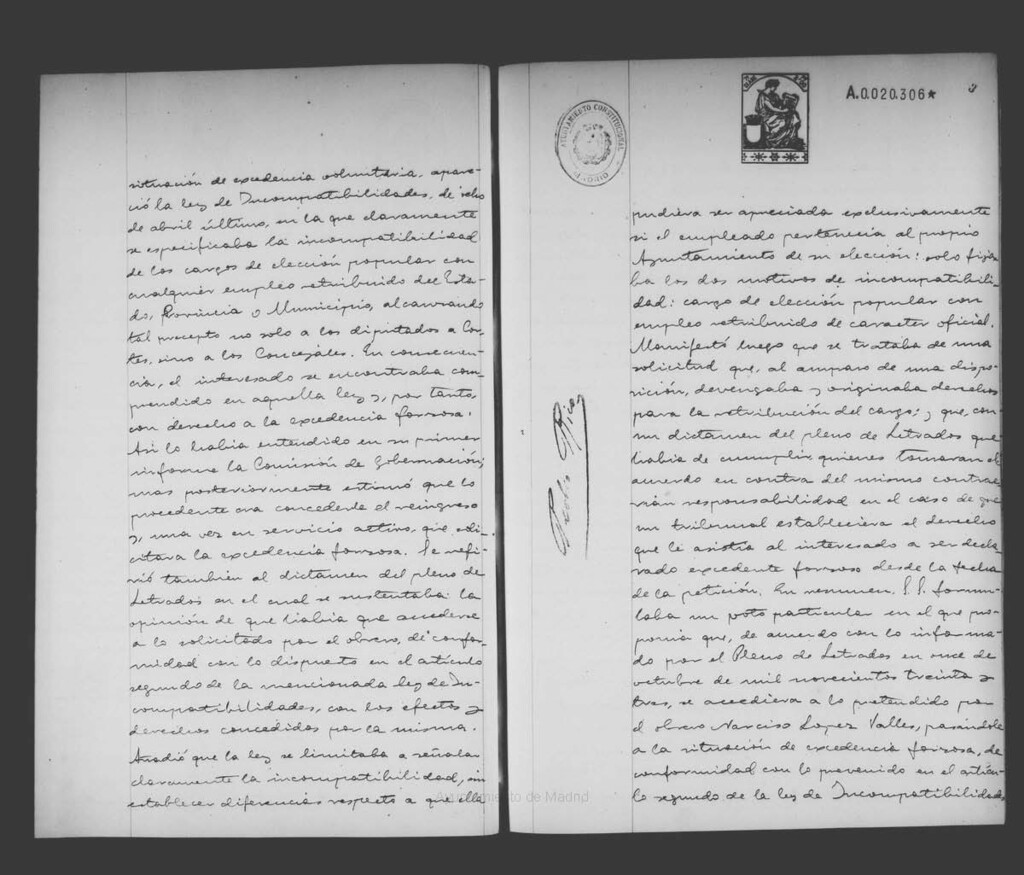 situación de excedencia voluntaria, apare-
ció la ley de Incompatibilidades, de ocho
de abril último, en la que claramente
se especificaba la incompatibilidad
de los cargos de elección popular con
cualquier empleo retribuido del Esta-
do, Provincia o Municipio, alcanzando
tal precepto no solo a los diputados a Cor-
tes, sino a los Concejales. En consecuen-
cia, el interesado se encontraba com-
prendido en aquella ley y, por tanto,
con derecho a la excedencia forzosa.
Así lo había entendido en su primer
informe la Comisión de Gobernación;
mas posteriormente estimó que lo
procedente era concederle el reingreso
y, una vez en servicio activo, que soli-
citara la excedencia forzosa. Se refi-
rió también al dictamen del pleno de
Letrados en el cual se sustentaba la
opinión de que había que acceder
a lo solicitado por el obrero, de confor-
midad con lo dispuesto en el artículo
segundo de la mencionada ley de In-
compatibilidades, con los efectos y
derechos concedidos por la misma.
Añadió que la ley se limitaba a señalar
claramente la incompatibilidad, sin
establecer diferencias respecto a que ella
AYUNTAMIENTO CONSTITUCIONAL
A.0.020.306*
3
pudiera ser apreciada exclusivamente
si el empleado pertenecía al propio
Ayuntamiento de su elección: solo fija-
ba los dos motivos de incompatibili-
dad: cargo de elección popular con
empleo retribuido de caracter oficial.
Manifestó luego que se trataba de una
solicitud que, al amparo de una dispo-
sición, devengaba y originaba derechos
para la retribución del cargo; y que, con
un dictamen del pleno de Letrados que
había de cumplir, quienes tomaran el
acuerdo en contra del mismo contrae-
rían responsabilidad en el caso de que
un tribunal estableciera el derecho
que le asistía al interesado a ser decla-
rado excedente forzoso desde la fecha
de la petición. En resumen, S.S. formu-
laba un voto particular en el que pro-
ponía que, de acuerdo con lo informa-
do por el Pleno de Letrados en once de
octubre de mil novecientos treinta y
tres, se accediera a lo pretendido por
el obrero Narciso Lopez Valles, pasándole
a la situación de excedencia forzosa, de
conformidad con lo prevenido en el artícu-
lo segundo de la ley de Incompatibilidades
Pedro Rico
Ayuntamiento de Madrid